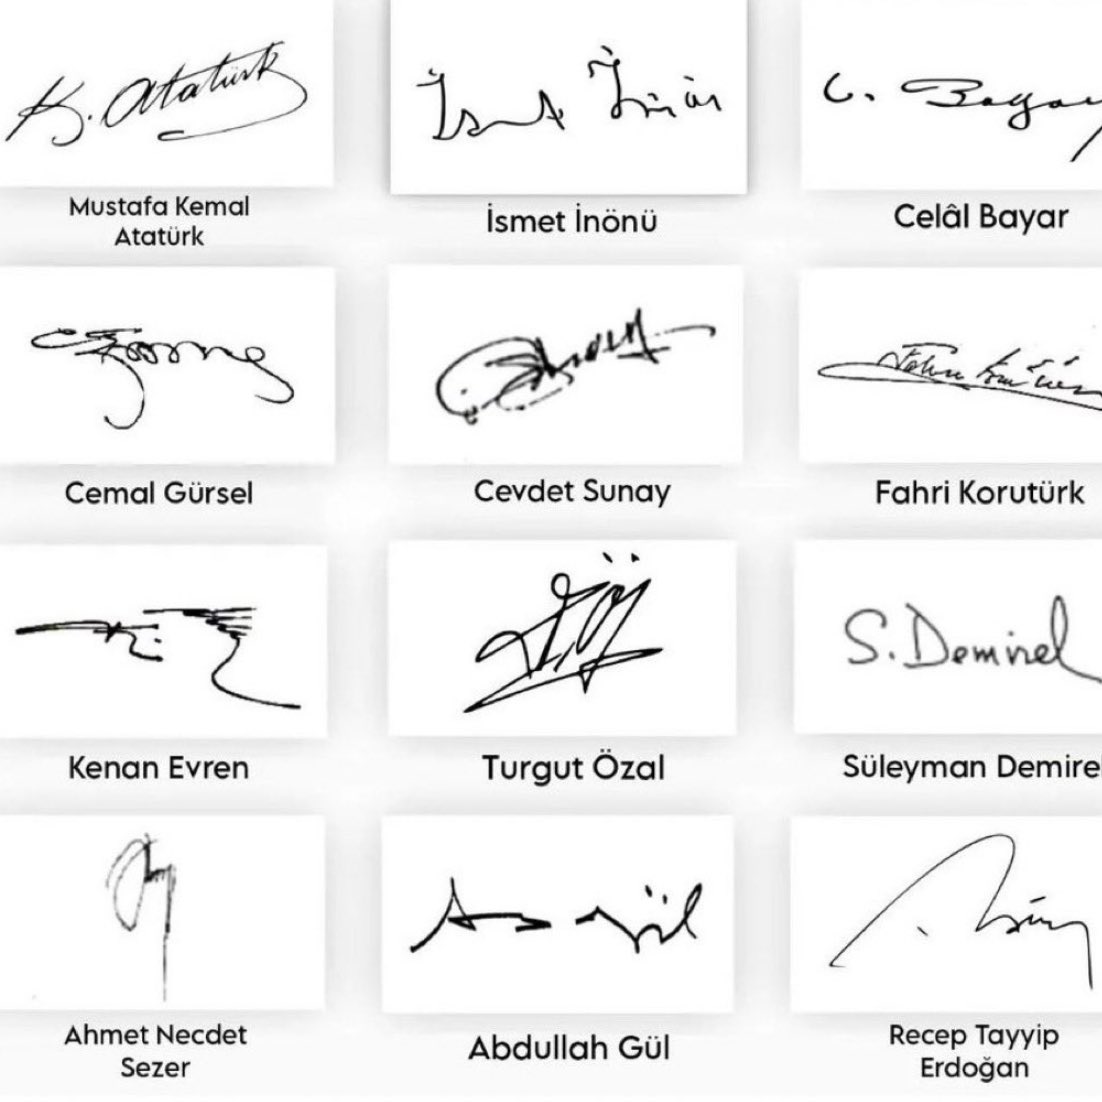 K. Atatürk
İsmet İnönü
C. Bayar
Mustafa Kemal
Atatürk
İsmet İnönü
Celâl Bayar
Cemal Gürsel
Cevdet Sunay
Fahri Korutürk
S. Demirel
Kenan Evren
Turgut Özal
Süleyman Demirel
Ahmet Necdet
Sezer
Abdullah Gül
Recep Tayyip
Erdoğan